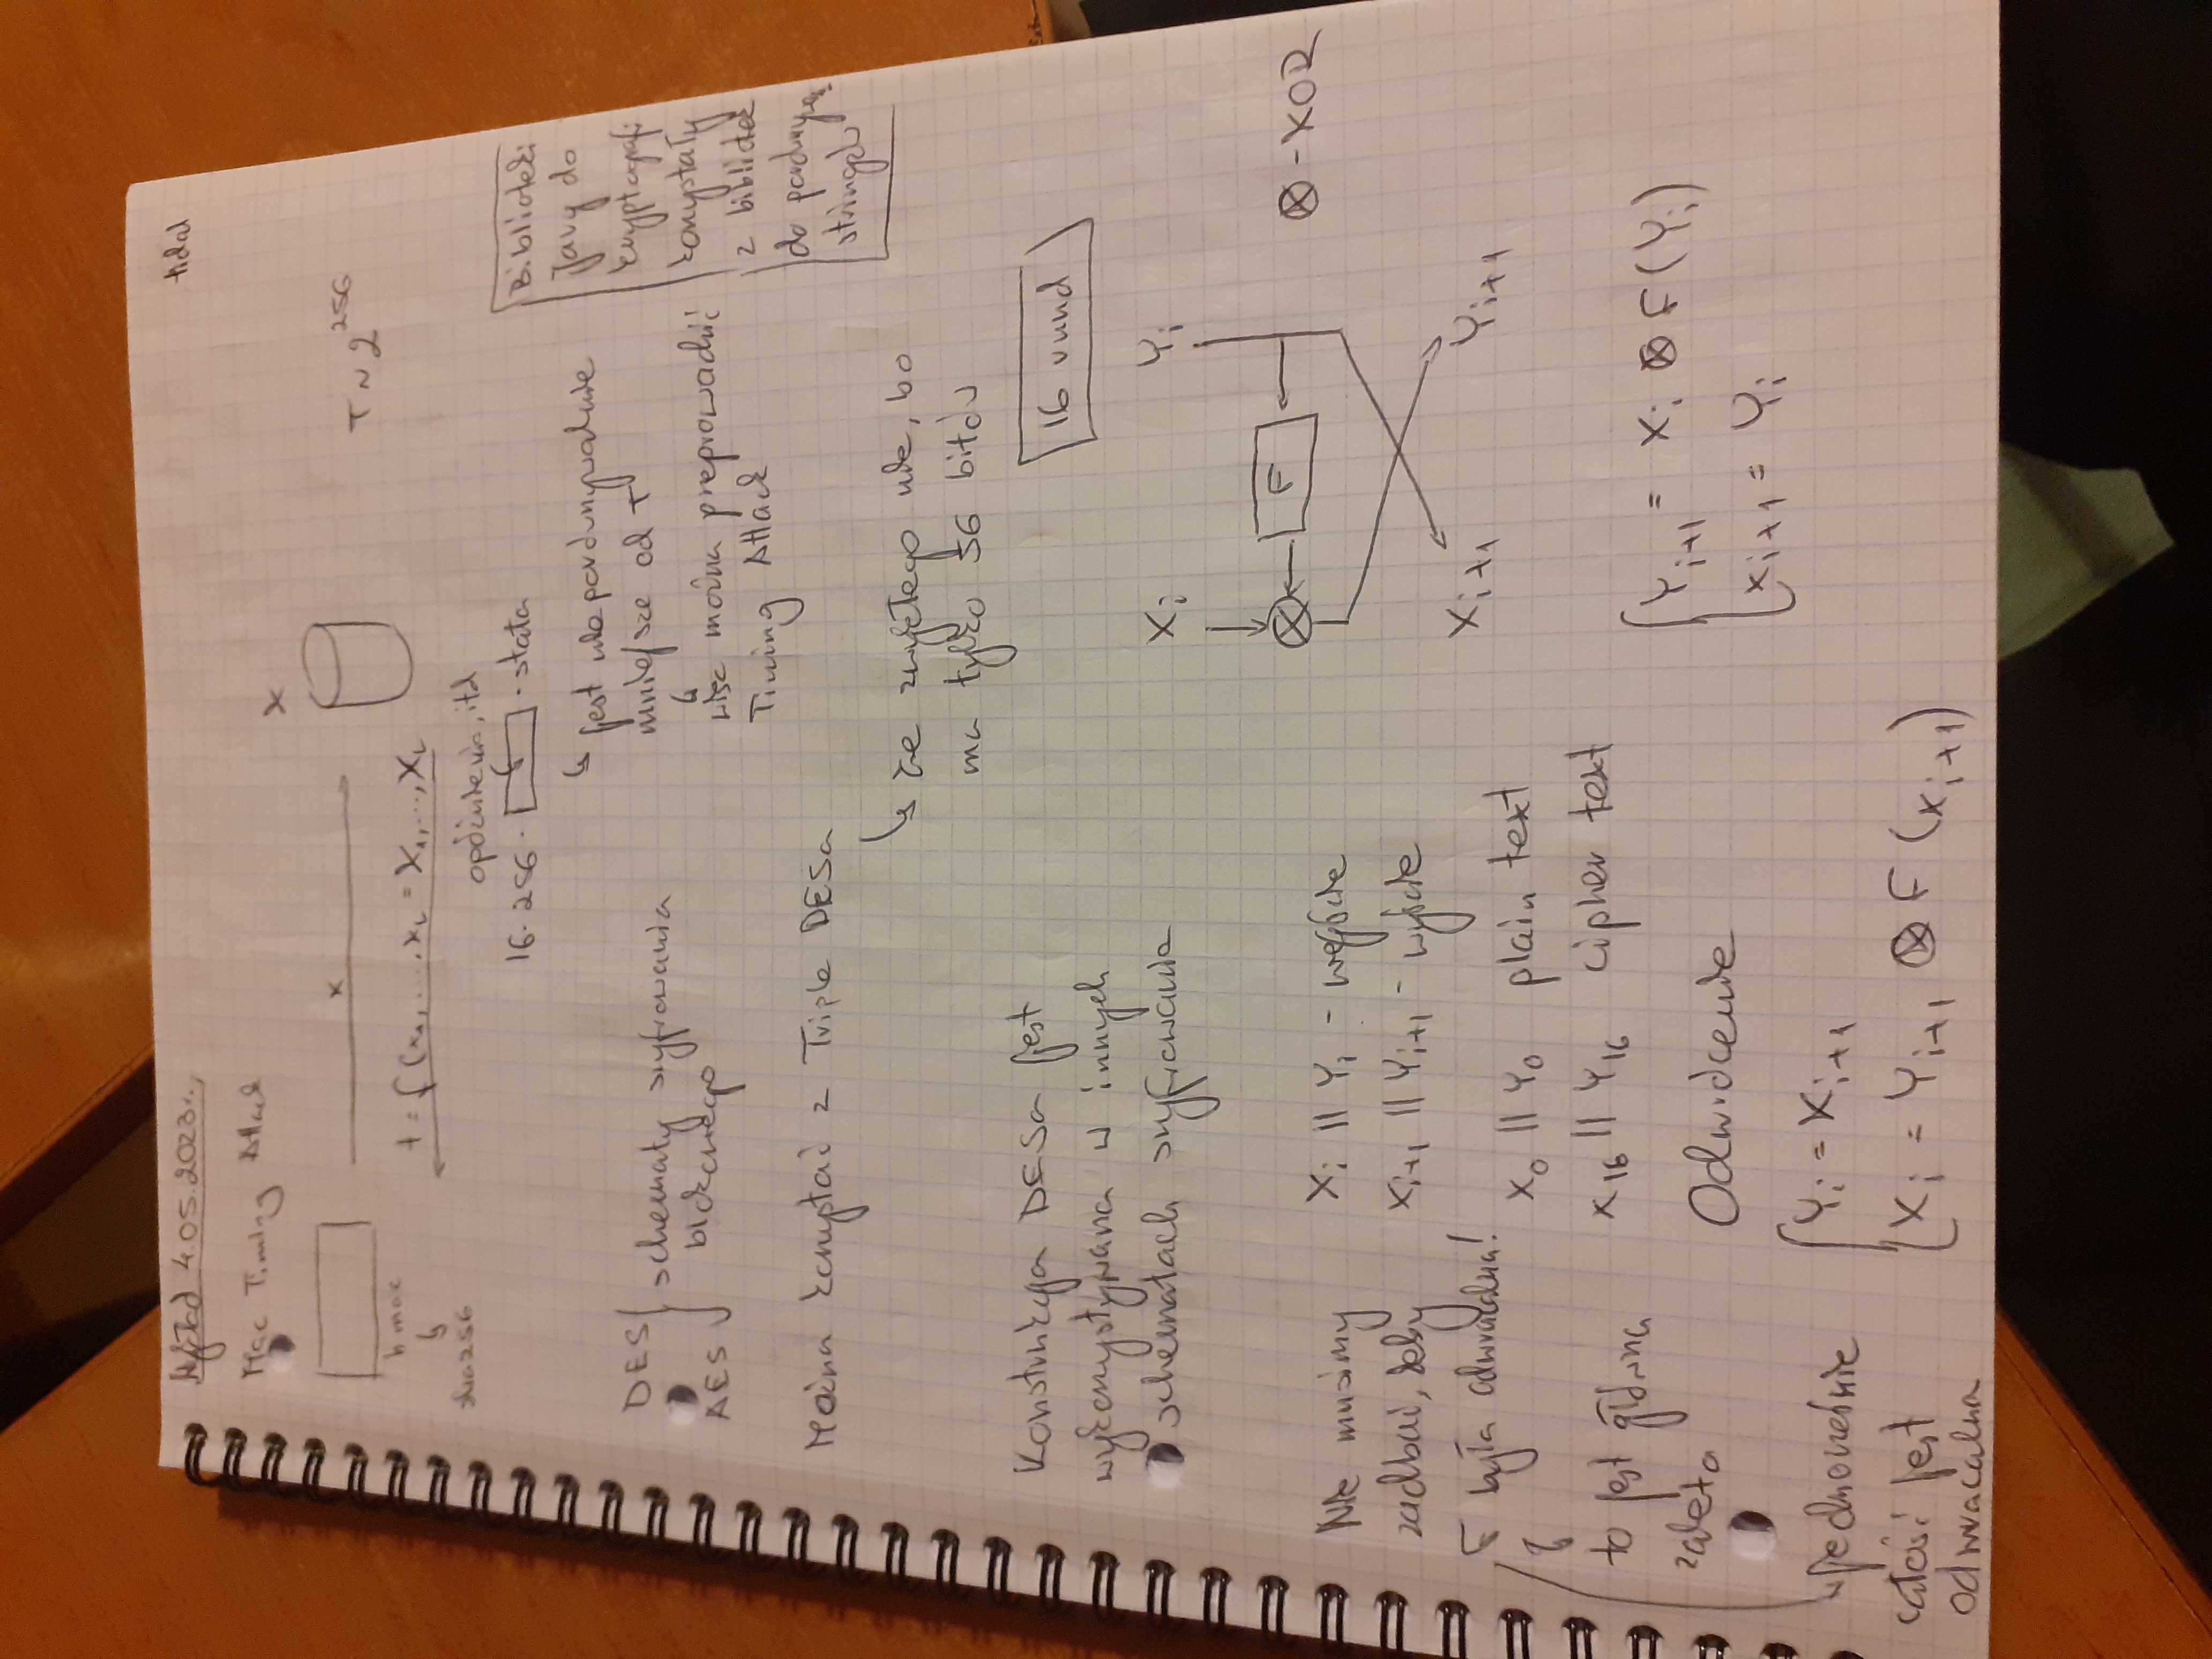 Wykład 4.05.2023r.
tidal
Mac Timing Attack
X
x
T ~ 2^256
hmac
t = f(x₁, ..., x_L = X₁, ..., X_L
sha256
opóźnienia, itd
16 · 256 · · stała
jest nieporównywalnie
mniejsze od T
więc można przeprowadzić
Timing Attack
Biblioteki
Javy do
kryptografi
korzystały
z bibliotek
do
stringów
DES
AES
schematy szyfrowania
blokowego
Można korzystać z Triple DESa
ze zwykłego nie, bo
ma tylko 56 bitów
Konstrukcja DESa jest
wykorzystywana w innych
schematach szyfrowania
16 rund
X_i Y_i
F
⊗ - XOR
X_{i+1} Y_{i+1}
Nie musimy
zadbać, żeby
F była odwracalna!
to jest główna
zaleta
jednocześnie
całość jest
odwracalna
X_i || Y_i - wejście
X_{i+1} || Y_{i+1} - wyjście
X_0 || Y_0 plain text
X_16 || Y_16 cipher text
Y_{i+1} = X_i ⊗ F(Y_i)
X_{i+1} = Y_i
Odwrócenie
Y_i = X_{i+1}
X_i = Y_{i+1} ⊗ F(X_{i+1})